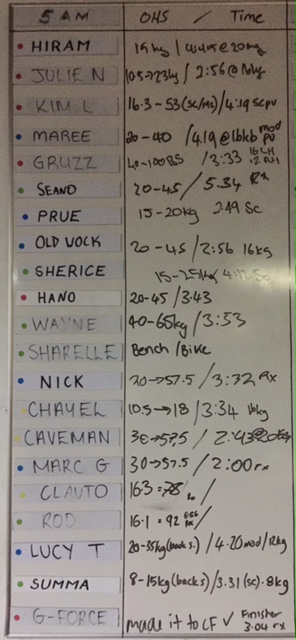 5 AM OHS / Time
HIRAM 15kg / @20kg
JULIE N 10.5→23kg / 2:56@16kg
KIM L 16.3-53(sc/MS) / 4:19 SCPU
MAREE 20-40 / 4.19 @16kb mod PU
GRUZZ 40-100BS / 3:33
SEANO 20-45 / 5.34 Rx
PRUE 15-20kg 3.49 Sc
OLD VOCK 20-45 / 2:56 16kg
SHERICE 15-25kg
HANO 20-45 / 3.43
WAYNE 40-65kg / 3:53
SHARELLE Bench / Bike
NICK 30→57.5 / 3:32 Rx
CHAYEL 10.5→18 / 3:34 16kg
CAVEMAN 30→57.5 / 2:43@20kg
MARC G 30→57.5 / 2:00 rx
CLAUTO 16.3 = 78 /
ROD 16.1 = 92 /
LUCY T 20-35kg(back s.) / 4.20 mod / 12kg
SUMMA 8-15kg(back s) / 3.31 (sc). 8kg
G-FORCE made it to CF ✓ Finisher 3:04 rx